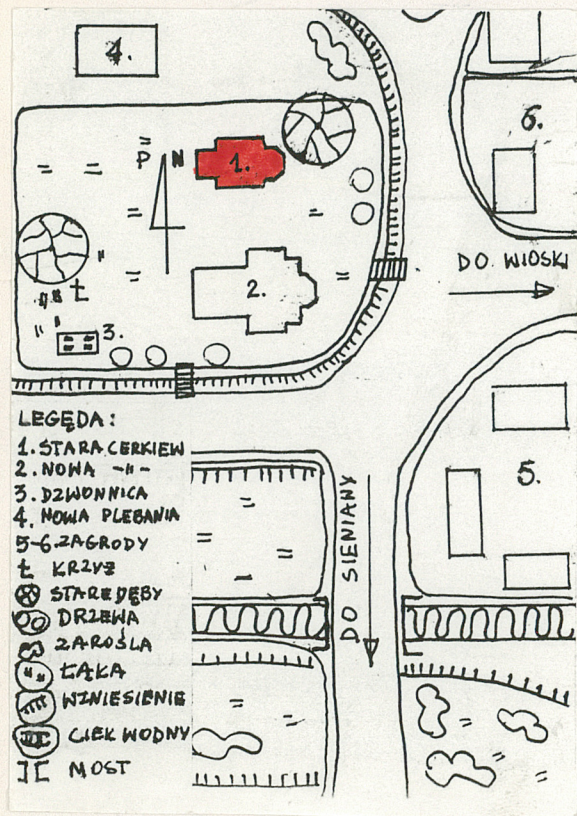 4.
6.
P N
1.
DO WIOSKI
2.
3.
LEGĘDA:
1. STARA CERKIEW
2. NOWA -"-
3. DZWONNICA
4. NOWA PLEBANIA
5-6. ZAGRODY
KRZYŻ
STARE DĘBY
DRZEWA
ZAROŚLA
ŁĄKA
WINIESIENIE
CIEK WODNY
MOST
DO SIENIANY
5.